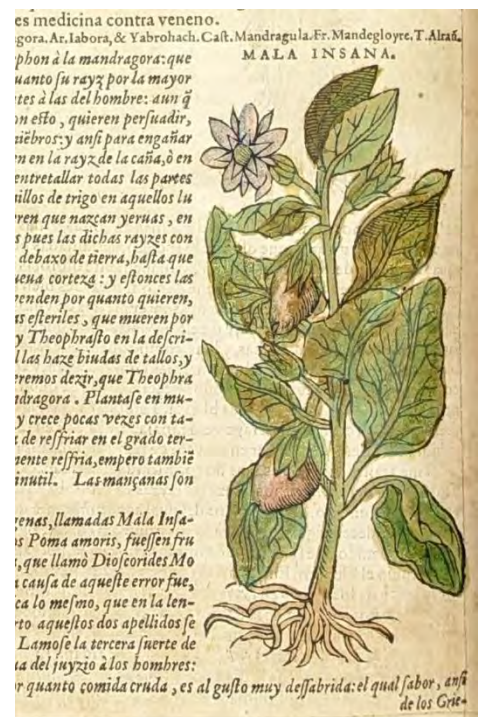 es medicina contra veneno.
agora. Ar. Iabora, & Yabrohach. Caſt. Mandragula. Fr. Mandegloyre. T. Alrañ.
MALA INSANA.
phon à la mandragora: que
uanto ſu rayz por la mayor
tes à las del hombre: aun q̃
on eſto, quieren perſuadir,
niẽbros: y anſi para engañar
n en la rayz de la caña, ò en
entretallar todas las partes
nillos de trigo en aquellos lu
eren que nazcan yeruas, en
s pues las dichas rayzes con
debaxo de tierra, haſta que
ueua corteza: y eſtonces las
venden por quanto quieren,
as eſteriles, que mueren por
y Theophraſto en la deſcri-
l las haze biudas de tallos, y
eremos dezir, que Theophra
ndragora. Plantaſe en mu-
y crece pocas vezes con ta-
de reſfriar en el grado ter-
mente reſfria, empero tambiẽ
inutil. Las mançanas ſon
genas, llamadas Mala Inſa-
s Poma amoris, fueſſen fru
, que llamò Dioſcorides Mo
a cauſa de aqueſte error fue,
ca lo meſmo, que en la len-
rto aqueſtos dos apellidos ſe
Lamoſe la tercera ſuerte de
ua del juyzio à los hombres:
or quanto comida cruda, es al guſto muy deſſabrida: el qual ſabor, anſi
de los Grie-